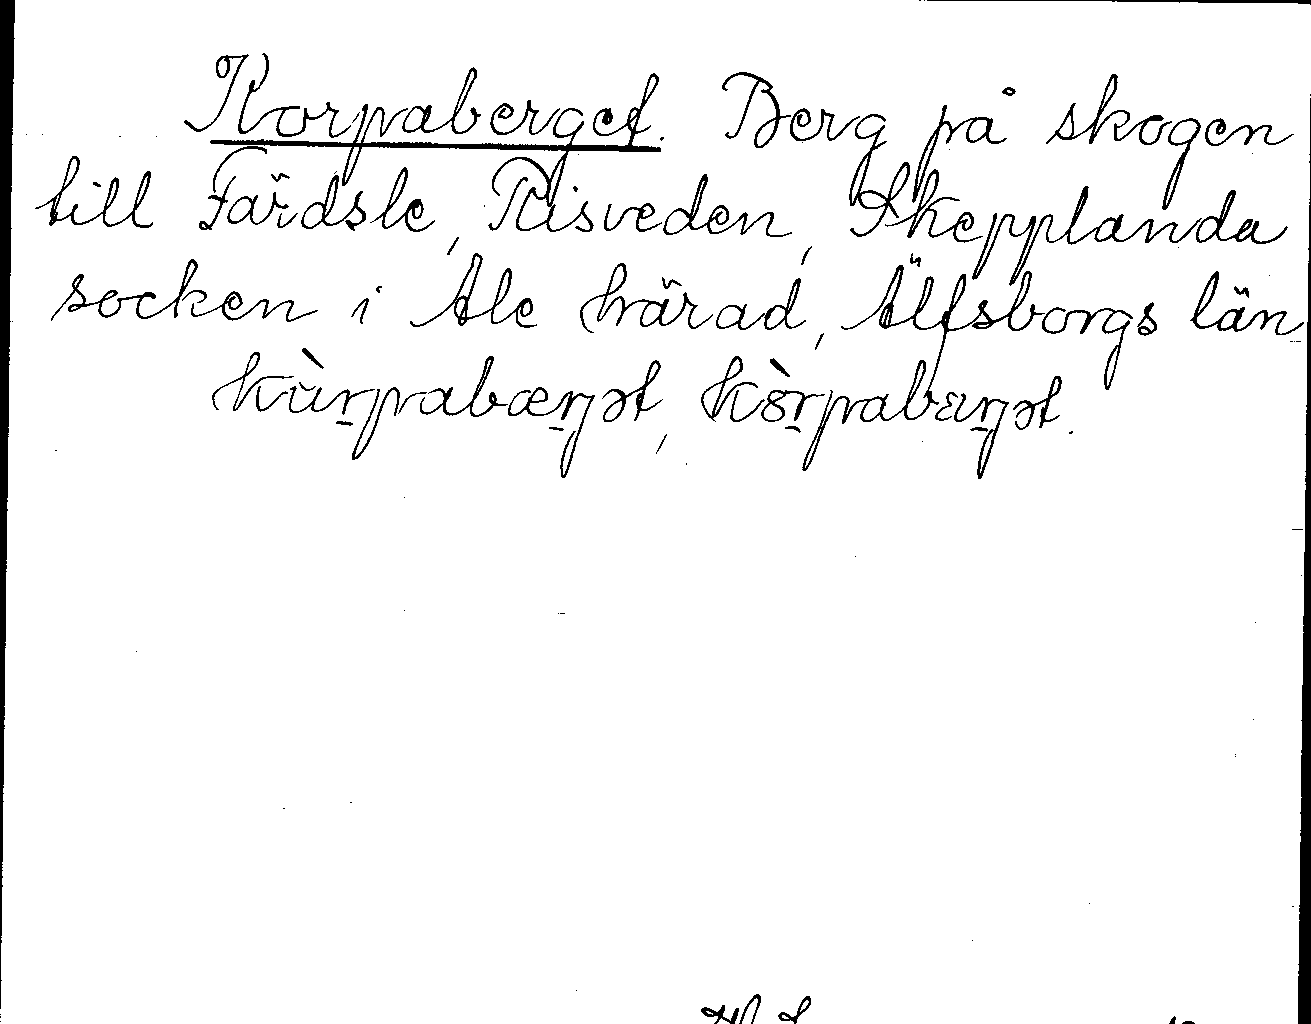 Korpaberget. Berg på skogen
till Färdsle, Risveden, Skepplanda
socken i Ale härad, Älfsborgs län
kùrpabærjət, kòrpabærjət.